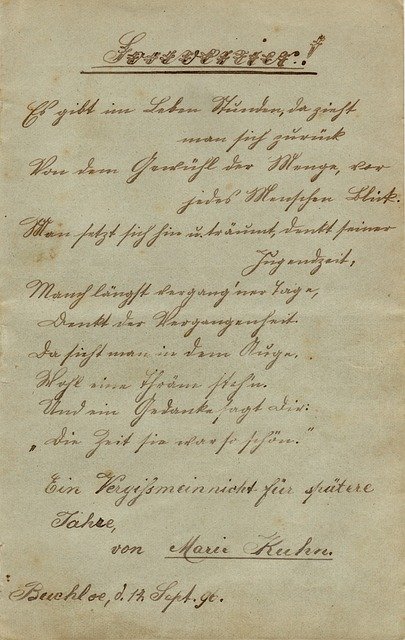 Es gibt im Leben Stunden, da zieht
man sich zurück
Von dem Gewühl der Menge, vor
jedes Menschen Blick.
Man setzt sich hin u. träumt, denkt seiner
Jugendzeit,
Manch längst vergang'ner Tage,
Denkt der Vergangenheit
Da sieht man in dem Auge,
Wohl eine Thrän' steh'n.
Und ein Gedanke sagt Dir:
„Die Zeit sie war so schön."
Ein Vergißmeinnicht für spätere
Jahre,
von Marie Kuhn.
Buchloe, d. 12. Sept. 90.